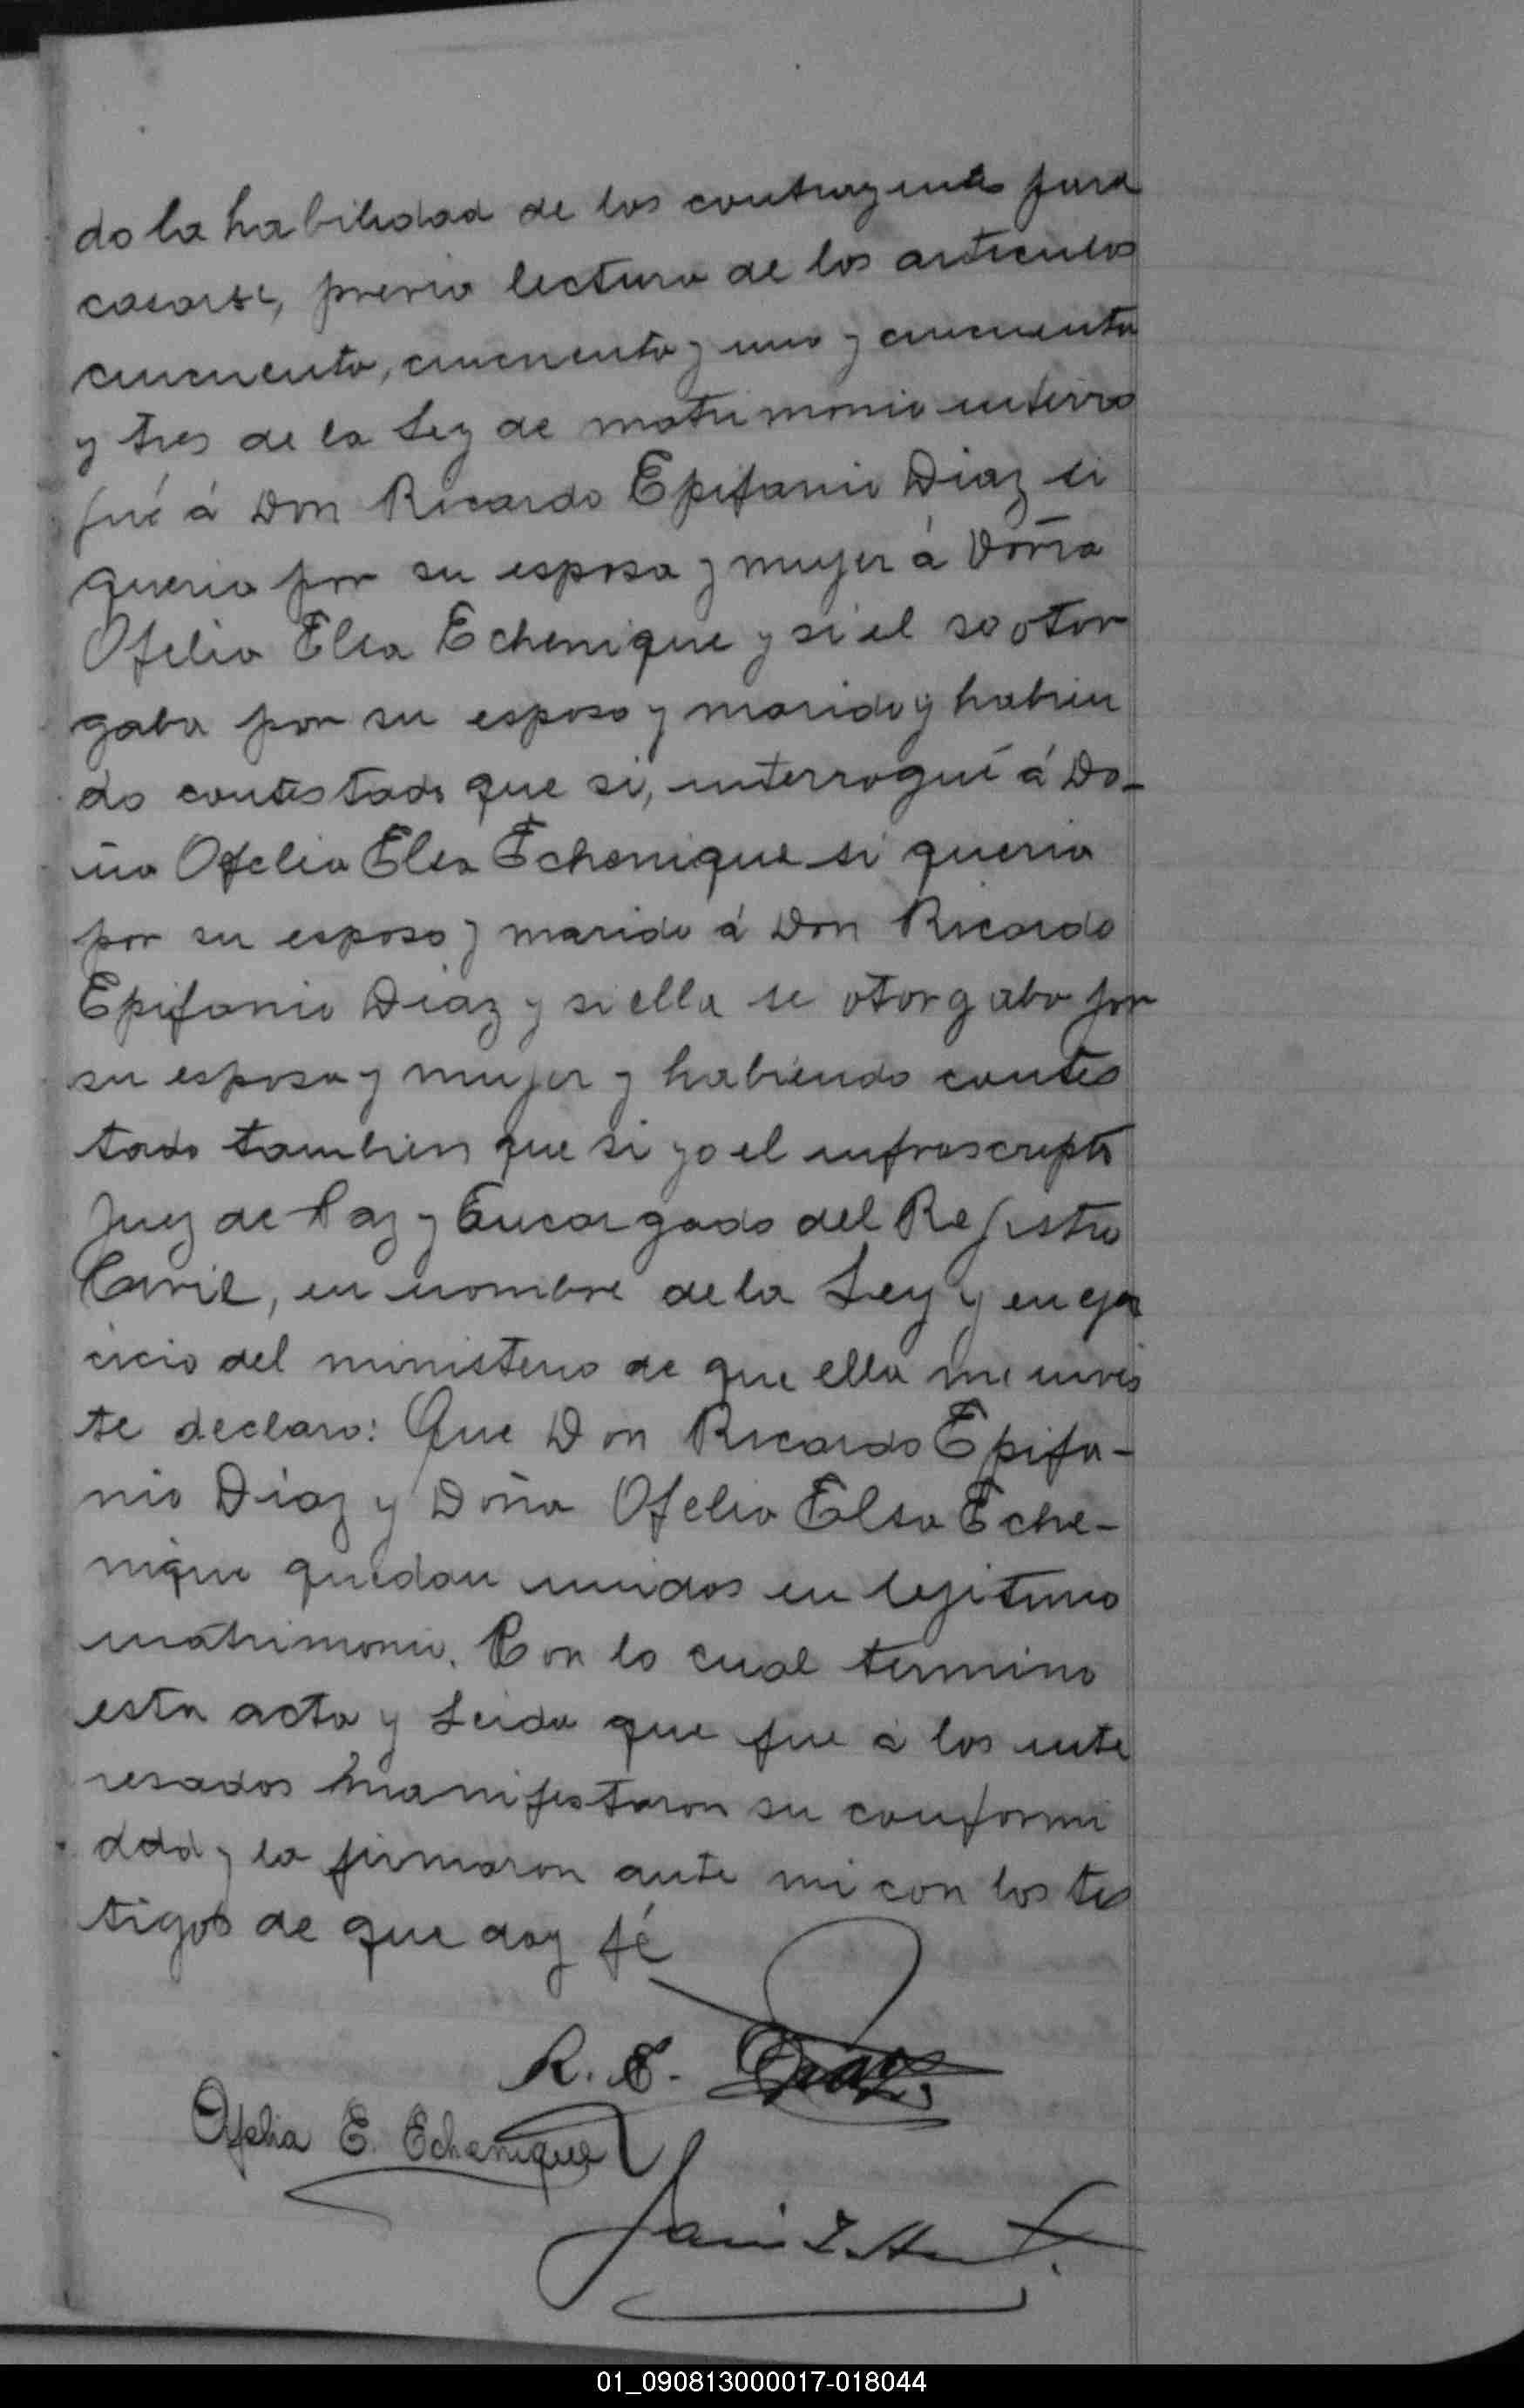 do la habilidad de los contrayentes para
casarse, previa lectura de los articulos
cincuenta, cincuenta y uno y cincuenta
y tres de la Ley de matrimonio interro
gué á Don Ricardo Epifanio Diaz si
queria por su esposa y mujer á Doña
Ofelia Elsa Echenique y si el se otor
gaba por su esposo y marido y habien
do contestado que si, interrogué á Do-
ña Ofelia Elsa Echenique si queria
por su esposo y marido á Don Ricardo
Epifanio Diaz y si ella se otorgaba por
su esposa y mujer y habiendo contes
tado tambien que si yo el infrascripto
Juez de Paz y Encargado del Registro
Civil, en nombre de la Ley y en ejer
cicio del ministerio de que ella me invis
te declaro: Que Don Ricardo Epifa-
nio Diaz y Doña Ofelia Elsa Eche-
nique quedan unidos en lejitimo
matrimonio. Con lo cual termino
esta acta y Leida que fue á los inte
resados manifestaron su conformi
dad y la firmaron ante mi con los tes
tigos de que doy fé
R. E. Diaz
Ofelia E. Echenique
01_090813000017-018044